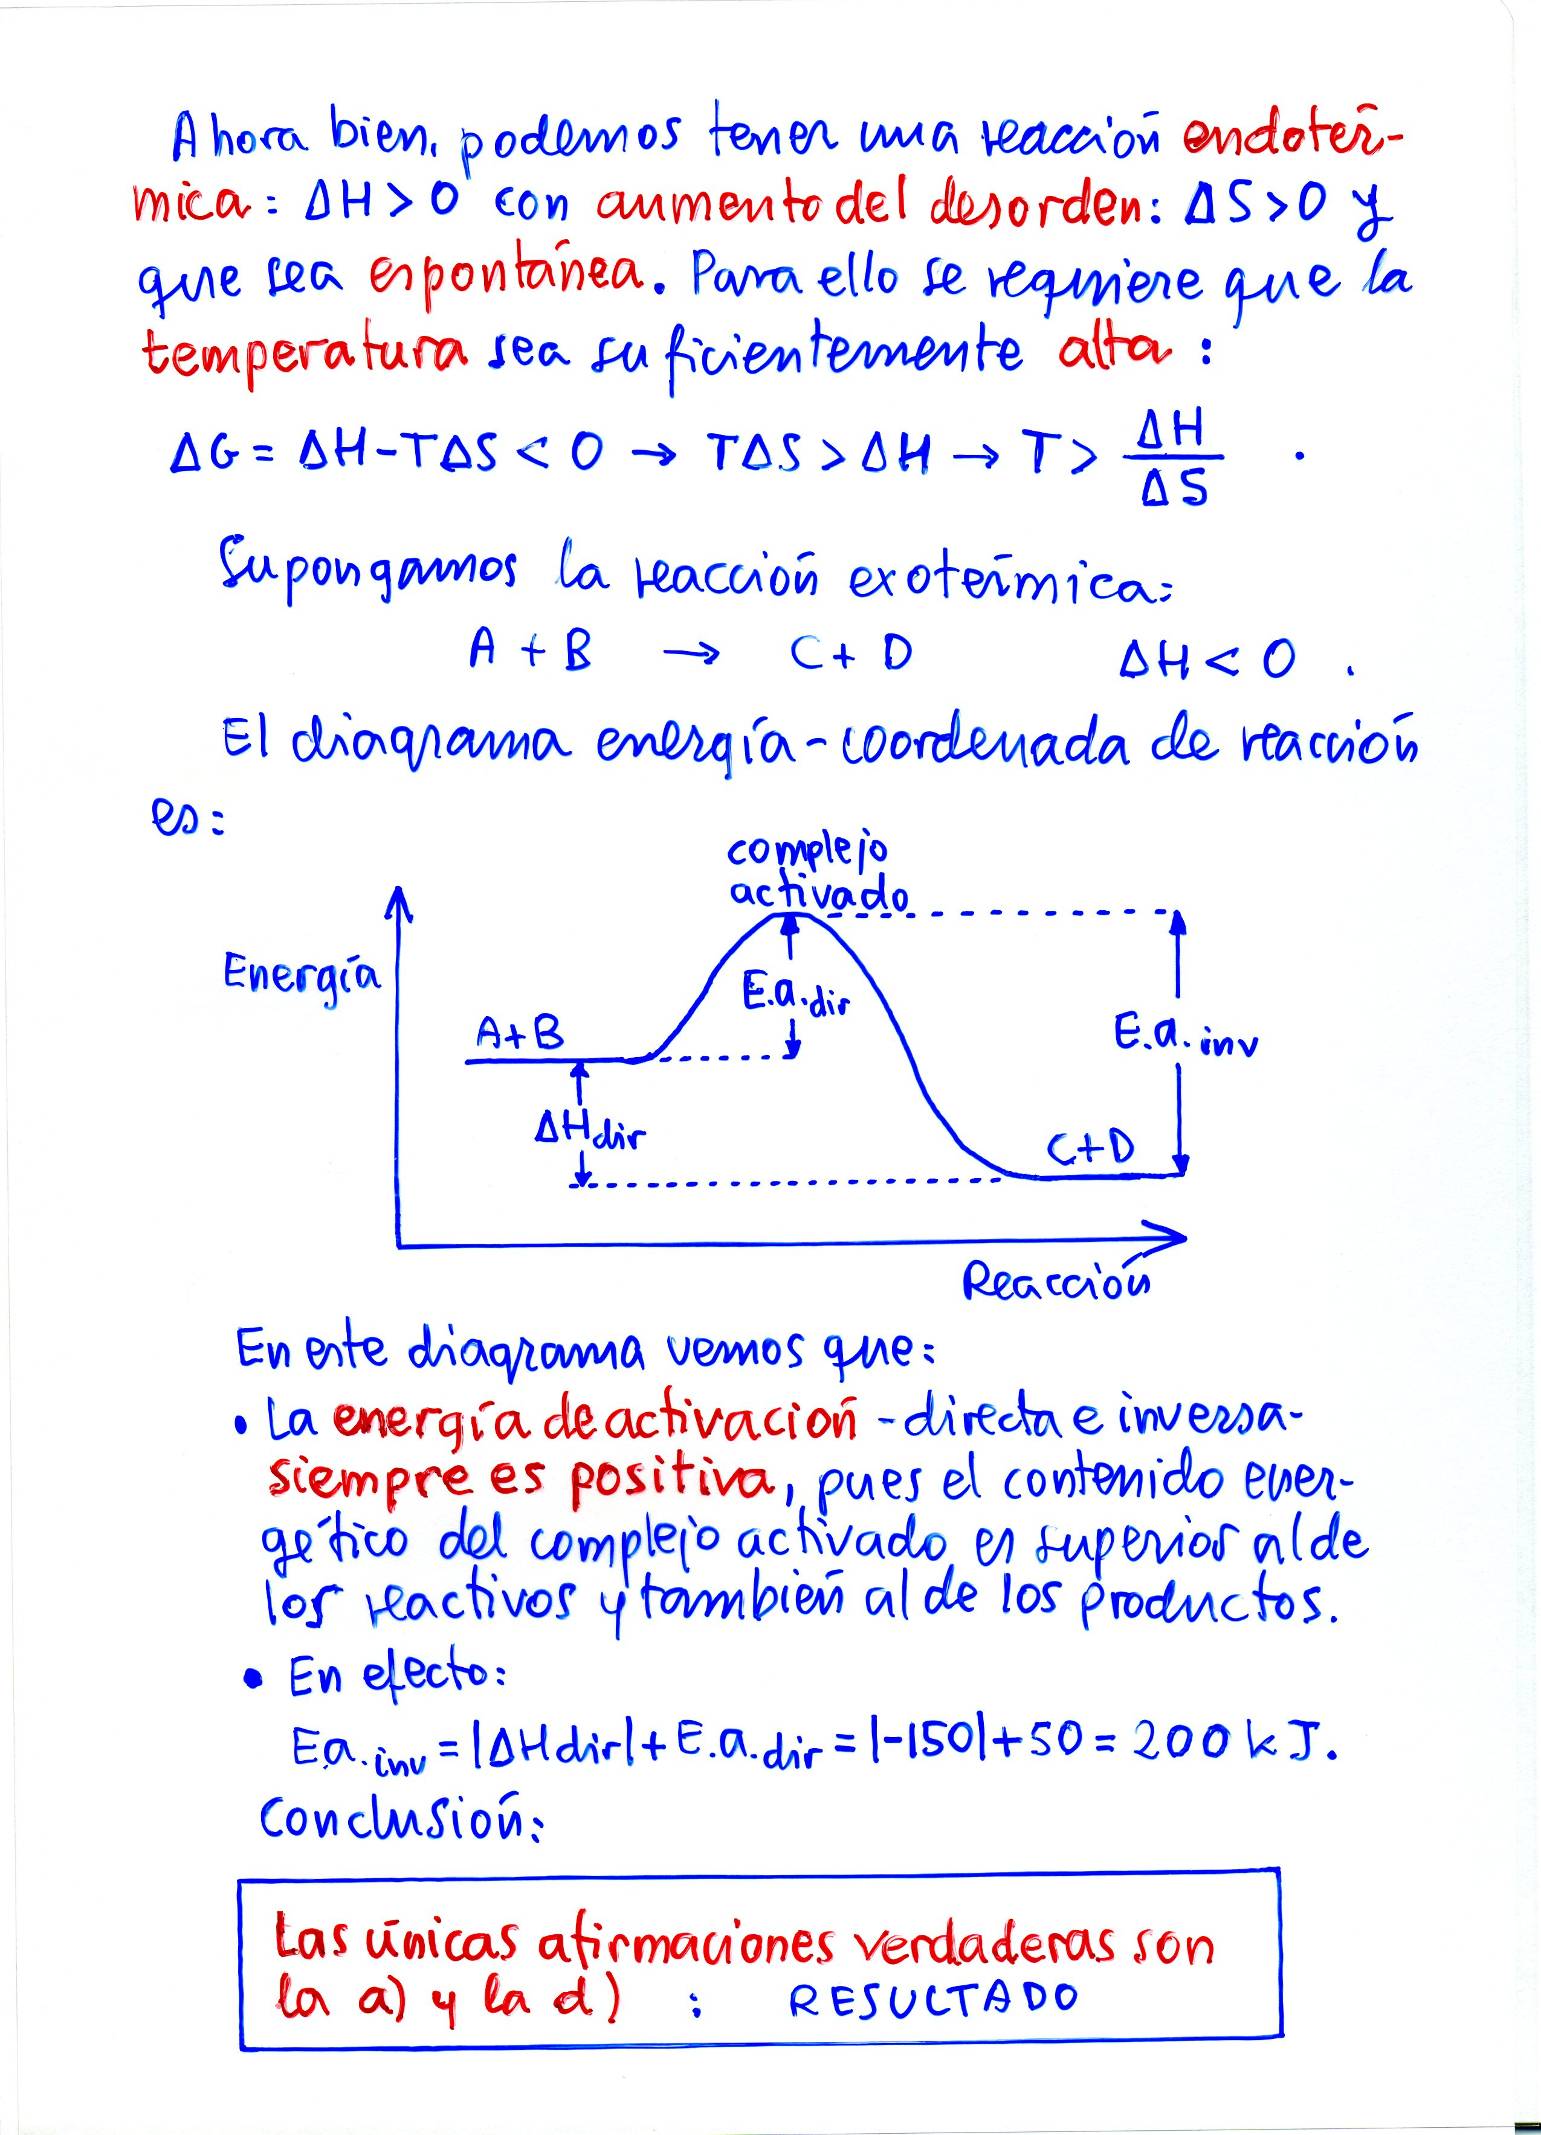 Ahora bien, podemos tener una reacción endotér-
mica: ΔH > 0 con aumento del desorden: ΔS > 0 y
que sea espontánea. Para ello se requiere que la
temperatura sea suficientemente alta:
ΔG = ΔH - TΔS < 0 → TΔS > ΔH → T > ΔH/ΔS .
Supongamos la reacción exotérmica:
A + B → C + D ΔH < 0 .
El diagrama energía-coordenada de reacción
es:
complejo
activado
Energía
E.a.dir
A+B
E.a.inv
ΔHdir
C+D
Reacción
En este diagrama vemos que:
• La energía de activación - directa e inversa-
siempre es positiva, pues el contenido ener-
gético del complejo activado es superior al de
los reactivos y también al de los productos.
• En efecto:
Ea.inv = |ΔHdir| + E.a.dir = |-150| + 50 = 200 kJ.
Conclusión:
Las únicas afirmaciones verdaderas son
la a) y la d) : RESULTADO